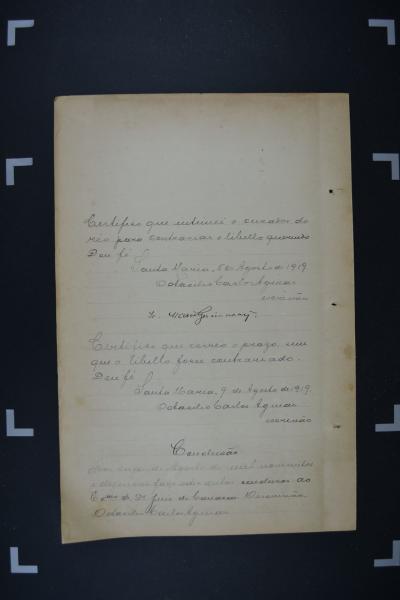 Certifico que intimei o curador do
réo para contrariar o libello querendo
Dou fé
Santa Maria, 5 de Agosto de 1919
Octacilio Carlos Aguiar
escrivão
Certifico que correo o prazo, sem
que o libello fosse contrariado.
Dou fé
Santa Maria, 9 de Agosto de 1919.
Octacilio Carlos Aguiar
escrivão
Conclusão
de Agosto de mil novecentos
e desenove faço estes autos conclusos ao
Exmo Sr. Dr. Juiz de Comarca
Octacilio Carlos Aguiar